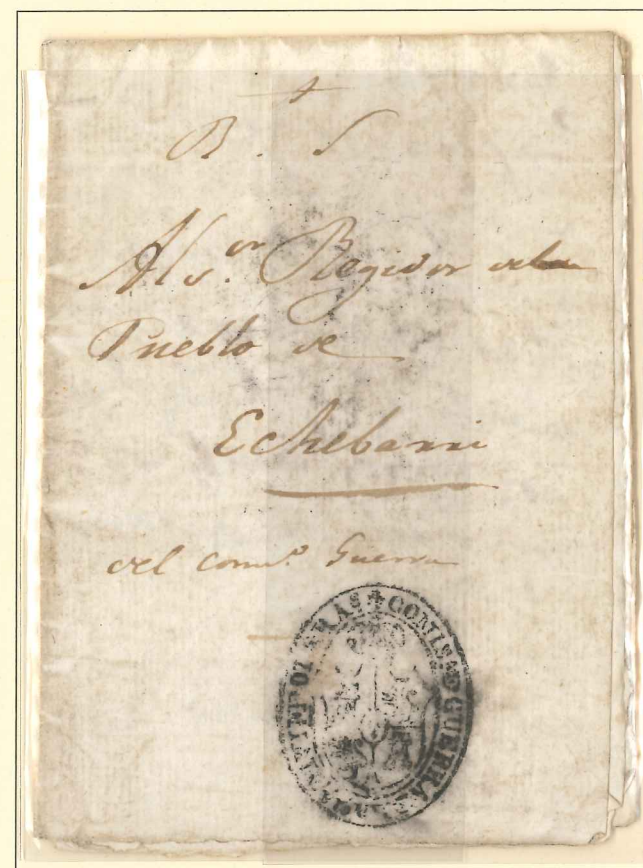 R. S
Al s.or Regidor del
Pueblo de
Echebarri
del Comis.o Guerra
COMIS DE GUERRA